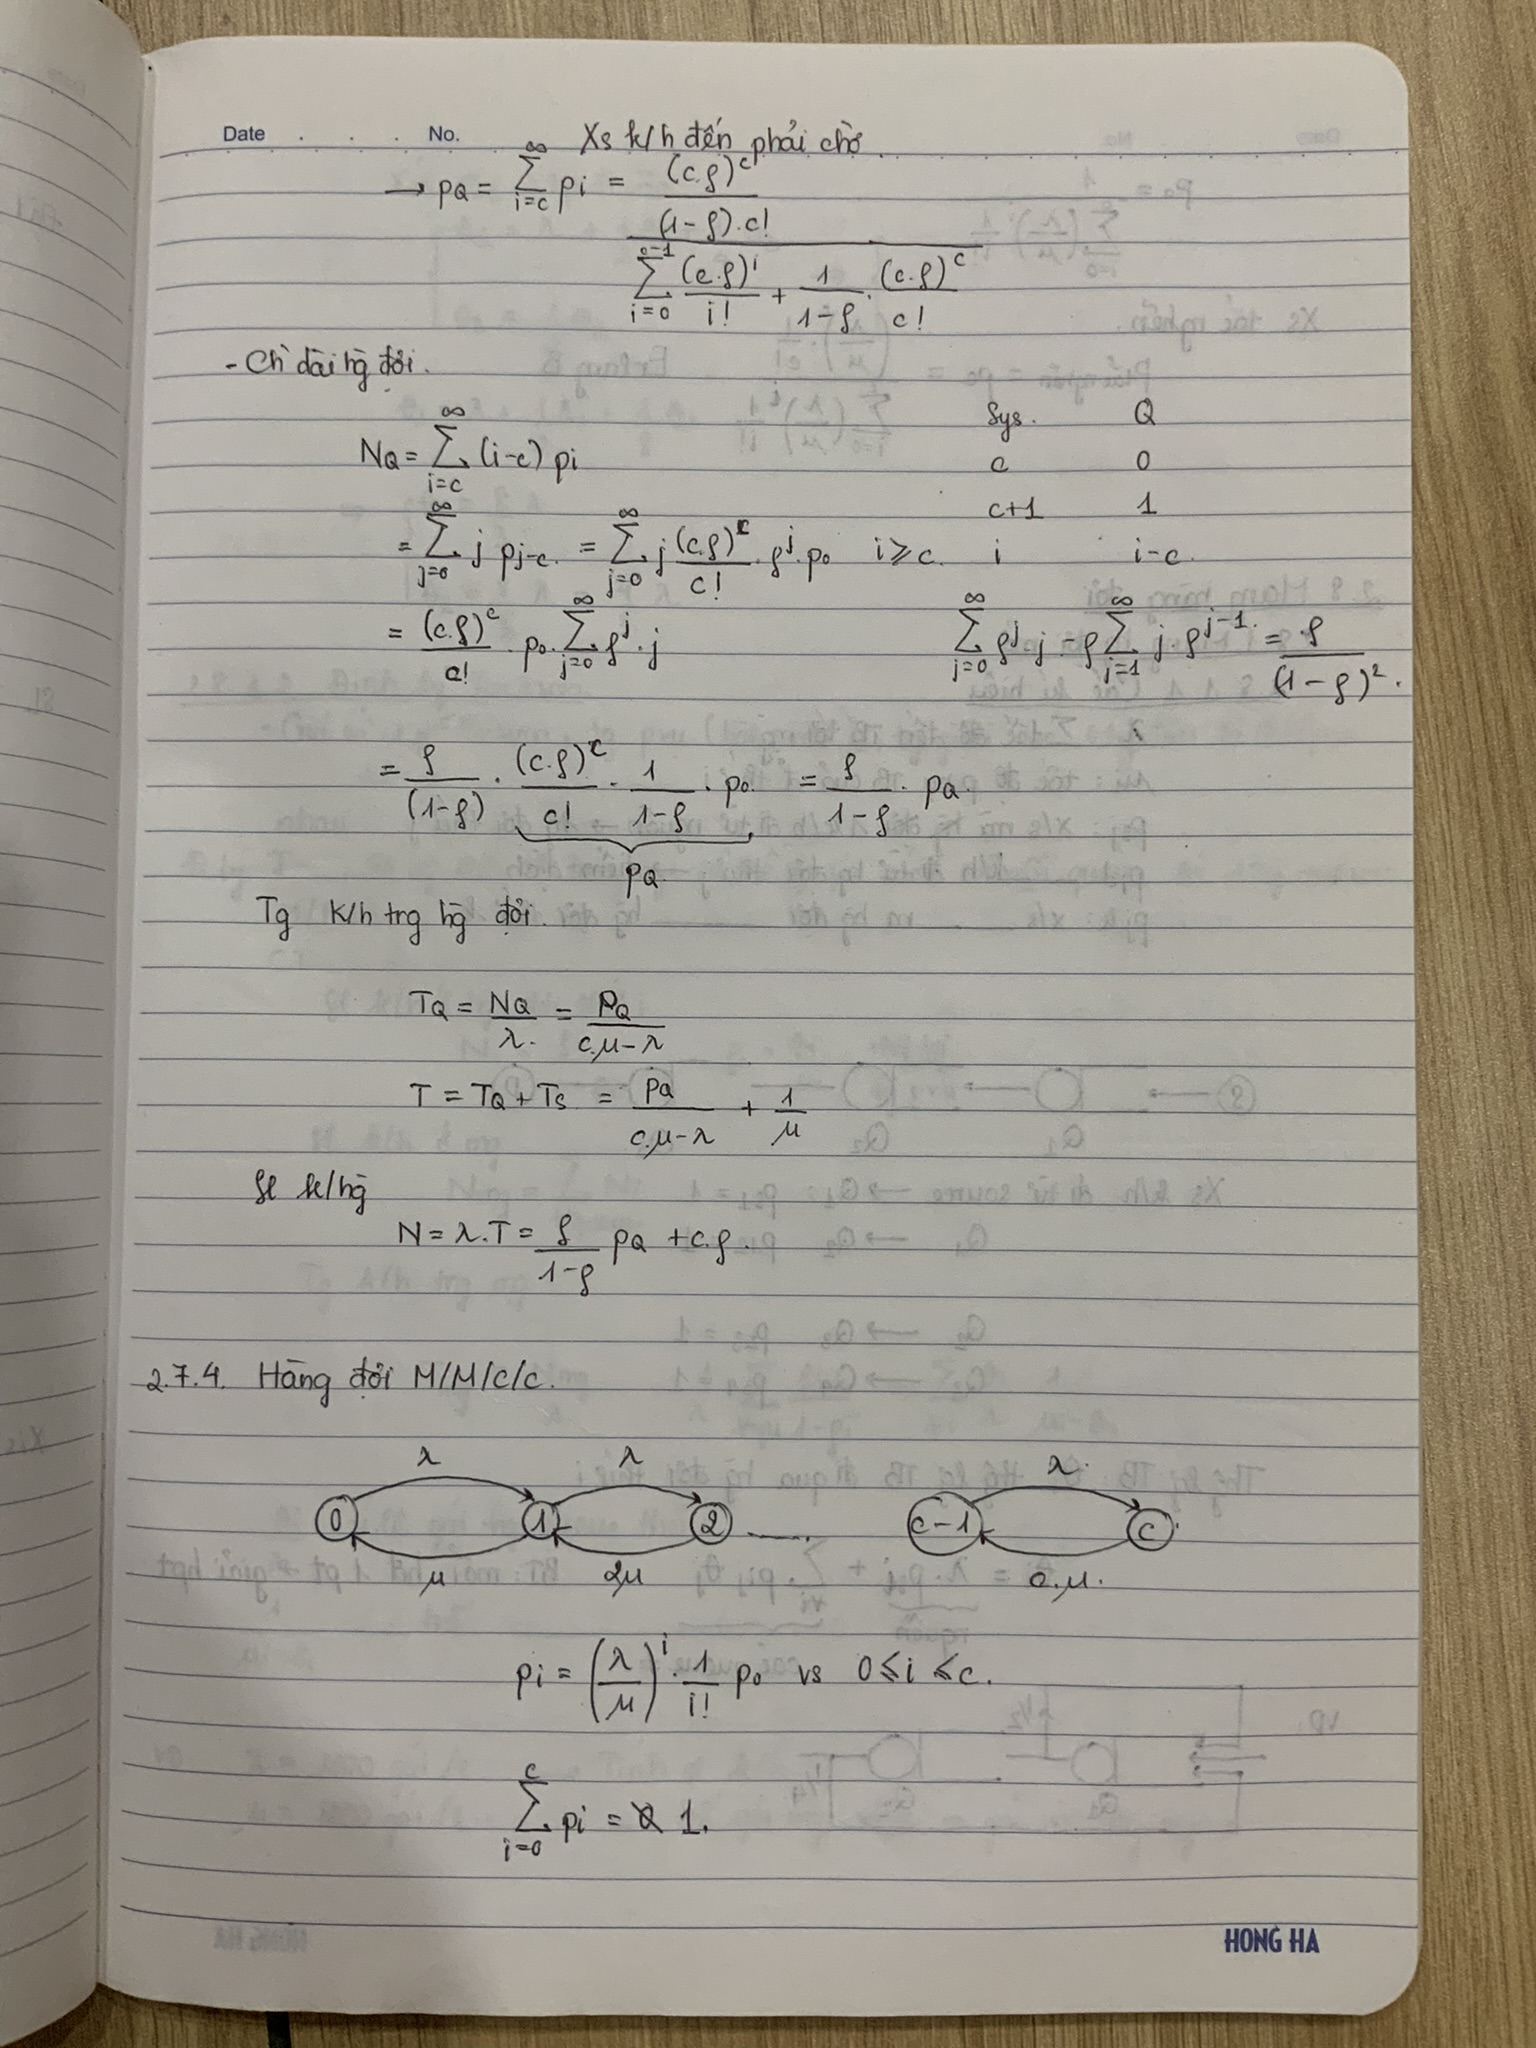 Date . . . No.
Xs k/h đến phải chờ
→ pQ = ∑_{i=c}^{∞} pi = ((c.ρ)^c / (1-ρ).c!) / (∑_{i=0}^{c-1} (c.ρ)^i / i! + 1/(1-ρ) . (c.ρ)^c / c!)
- Chì dài hg đợi.
Sys. Q
NQ = ∑_{i=c}^{∞} (i-c) pi
c 0
c+1 1
= ∑_{j=0}^{∞} j pj-c. = ∑_{j=0}^{∞} j (c.ρ)^c / c! . ρ^j . p0 i ⩾ c. i i-c.
= (c.ρ)^c / c! . p0. ∑_{j=0}^{∞} ρ^j . j
∑_{j=0}^{∞} ρ^j . j = ρ ∑_{j=1}^{∞} j . ρ^{j-1}. = ρ / (1-ρ)^2 .
= ρ / (1-ρ) . (c.ρ)^c / c! . 1 / (1-ρ) . p0. = ρ / (1-ρ) . pQ.
pQ.
Tg k/h trg hg đợi.
TQ = NQ / λ. = PQ / (c.μ-λ)
T = TQ + Ts = pQ / (c.μ-λ) + 1/μ
Sl k/hg
N = λ.T = ρ / (1-ρ) pQ + c.ρ.
2.7.4. Hàng đợi M/M/c/c.
λ λ λ.
0 1 2 ..... c-1 c
μ 2μ c.μ.
pi = (λ/μ)^i . 1/i! p0 vs 0 ⩽ i ⩽ c.
∑_{i=0}^{c} pi = 1.
HONG HA